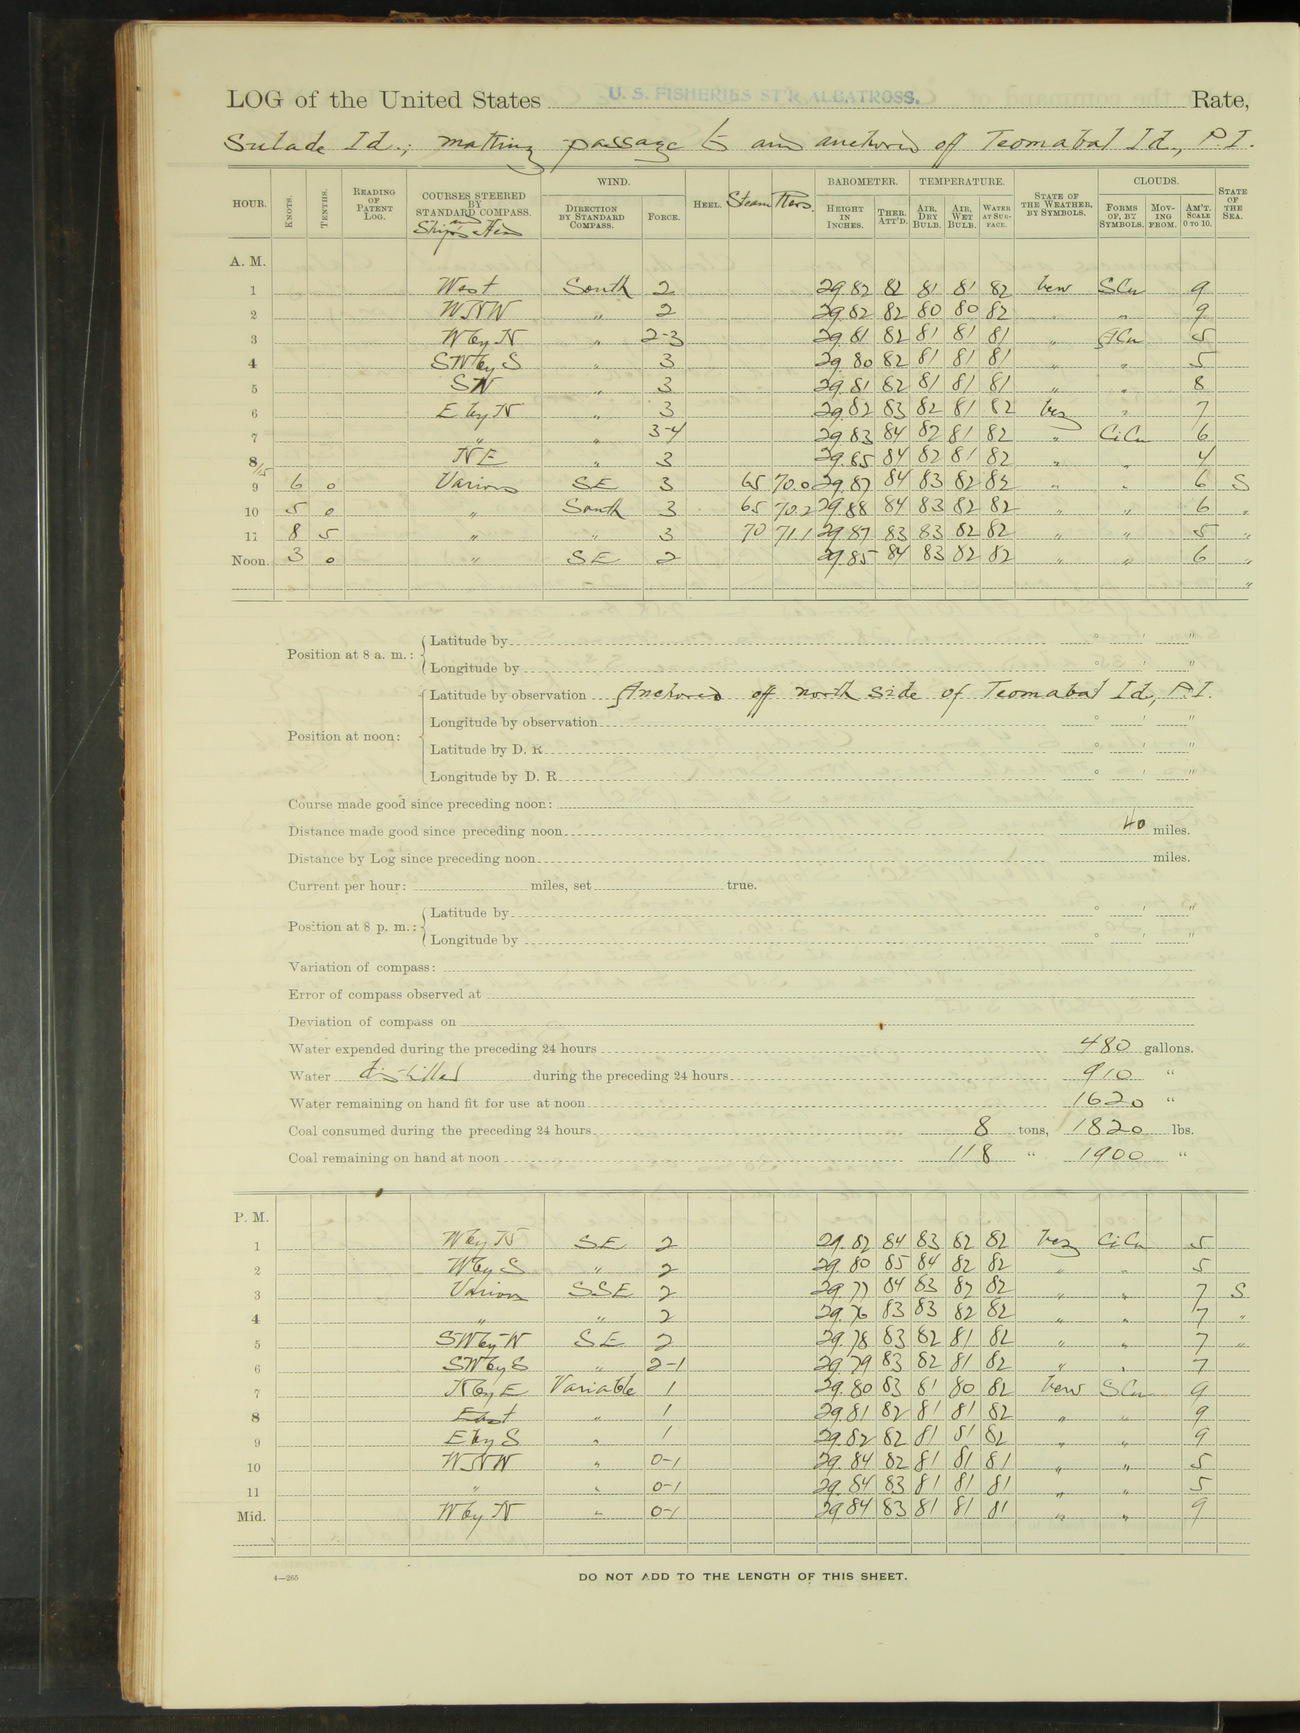 LOG of the United States U. S. FISHERIES ST'R ALBATROSS. Rate,
Sulade Id.; making passage to and anchored off Teomabal Id., P.I.
HOUR. KNOTS. TENTHS. READING OF PATENT LOG. COURSES STEERED BY STANDARD COMPASS. and Ship's Head WIND. DIRECTION BY STANDARD COMPASS. FORCE. HEEL. Steam Revs. BAROMETER. HEIGHT IN INCHES. THER. ATT'D. TEMPERATURE. AIR, DRY BULB. AIR, WET BULB. WATER AT SUR-FACE. STATE OF THE WEATHER, BY SYMBOLS. CLOUDS. FORMS OF, BY SYMBOLS. MOV-ING FROM. AM'T. SCALE 0 TO 10. STATE OF THE SEA.
A. M.
1 West South 2 29.82 82 81 81 82 bcw SCu 9
2 WNW " 2 29.82 82 80 80 82 " " 9
3 W by N " 2-3 29.81 82 81 81 81 " ACu 5
4 SW by S " 3 29.80 82 81 81 81 " " 5
5 SW " 3 29.81 82 81 81 81 " " 8
6 E by N " 3 29.82 83 82 81 82 bcz " 7
7 " " 3-4 29.83 84 82 81 82 " CiCu 6
8/15 NE " 3 29.85 84 82 81 82 " " 4
9 6 0 Various SE 3 65 70.0 29.87 84 83 82 82 " " 6 S
10 5 0 " South 3 65 70.2 29.88 84 83 82 82 " " 6 "
11 8 5 " " 3 70 71.1 29.87 83 83 82 82 " " 5 "
Noon. 3 0 " SE 2 29.85 84 83 82 82 " " 6 "
"
Position at 8 a. m.: Latitude by ° ' "
Longitude by ° ' "
Position at noon: Latitude by observation Anchored off north side of Teomabal Id., P.I.
Longitude by observation ° ' "
Latitude by D. R ° ' "
Longitude by D. R ° ' "
Course made good since preceding noon:
Distance made good since preceding noon 40 miles.
Distance by Log since preceding noon miles.
Current per hour: miles, set true.
Position at 8 p. m.: Latitude by ° ' "
Longitude by ° ' "
Variation of compass:
Error of compass observed at
Deviation of compass on
Water expended during the preceding 24 hours 480 gallons.
Water distilled during the preceding 24 hours 910 "
Water remaining on hand fit for use at noon 1620 "
Coal consumed during the preceding 24 hours 8 tons, 1820 lbs.
Coal remaining on hand at noon 118 " 1900 "
P. M.
1 W by N SE 2 29.82 84 83 82 82 bcz CiCu 5
2 W by S " 2 29.80 85 84 82 82 " " 5
3 Various SSE 2 29.77 84 83 82 82 " " 7 S
4 " " 2 29.76 83 83 82 82 " " 7 "
5 SW by W SE 2 29.78 83 82 81 82 " " 7 "
6 SW by S " 2-1 29.79 83 82 81 82 " " 7
7 N by E Variable 1 29.80 83 81 80 82 bcw SCu 9
8 East " 1 29.81 82 81 81 82 " " 9
9 E by S " 1 29.82 82 81 81 82 " " 9
10 WNW " 0-1 29.84 82 81 81 81 " " 5
11 " " 0-1 29.84 83 81 81 81 " " 5
Mid. W by N " 0-1 29.84 83 81 81 81 " " 9
4—265 DO NOT ADD TO THE LENGTH OF THIS SHEET.